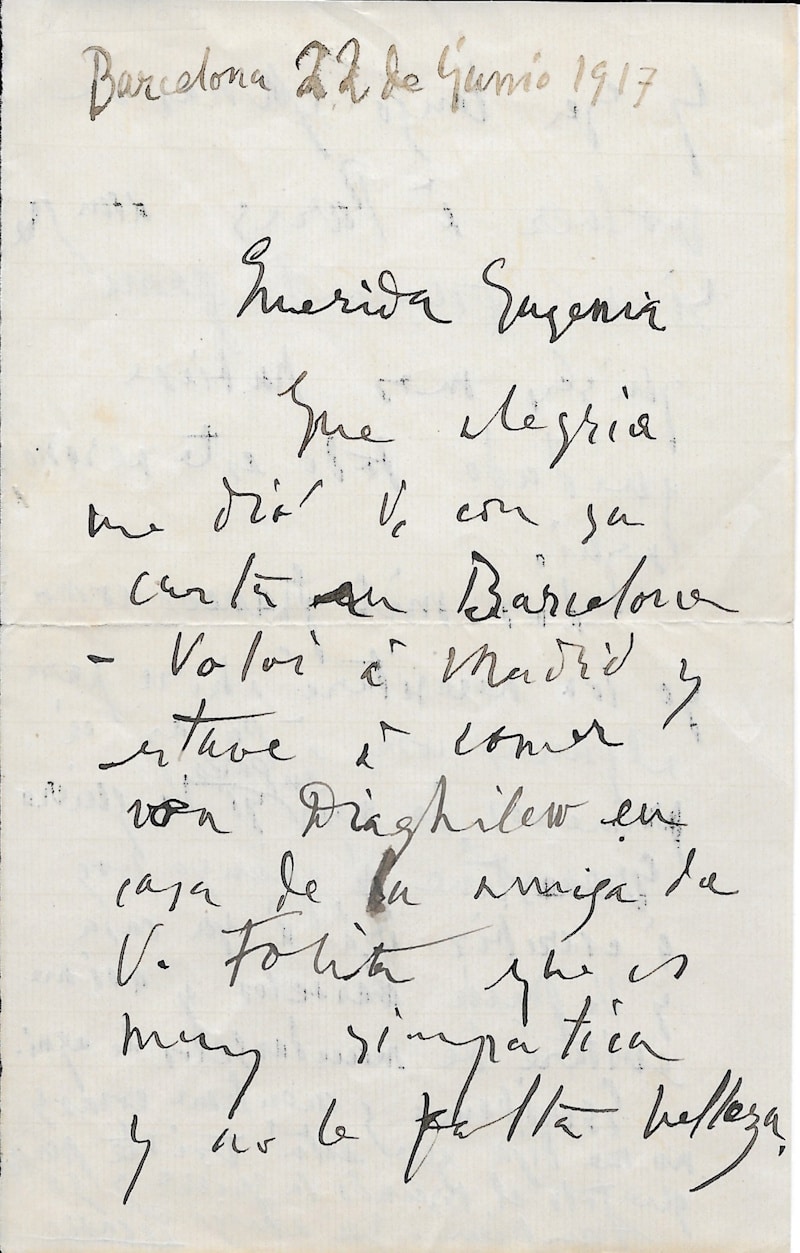 Barcelona 22 de Junio 1917
Querida Eugenia
Que alegria
me dió V. con su
carta en Barcelona
- Volvi á Madrid y
estuve á comer
con Diaghilew en
casa de la amiga de
V. que es
muy simpatica
y no le falta belleza.